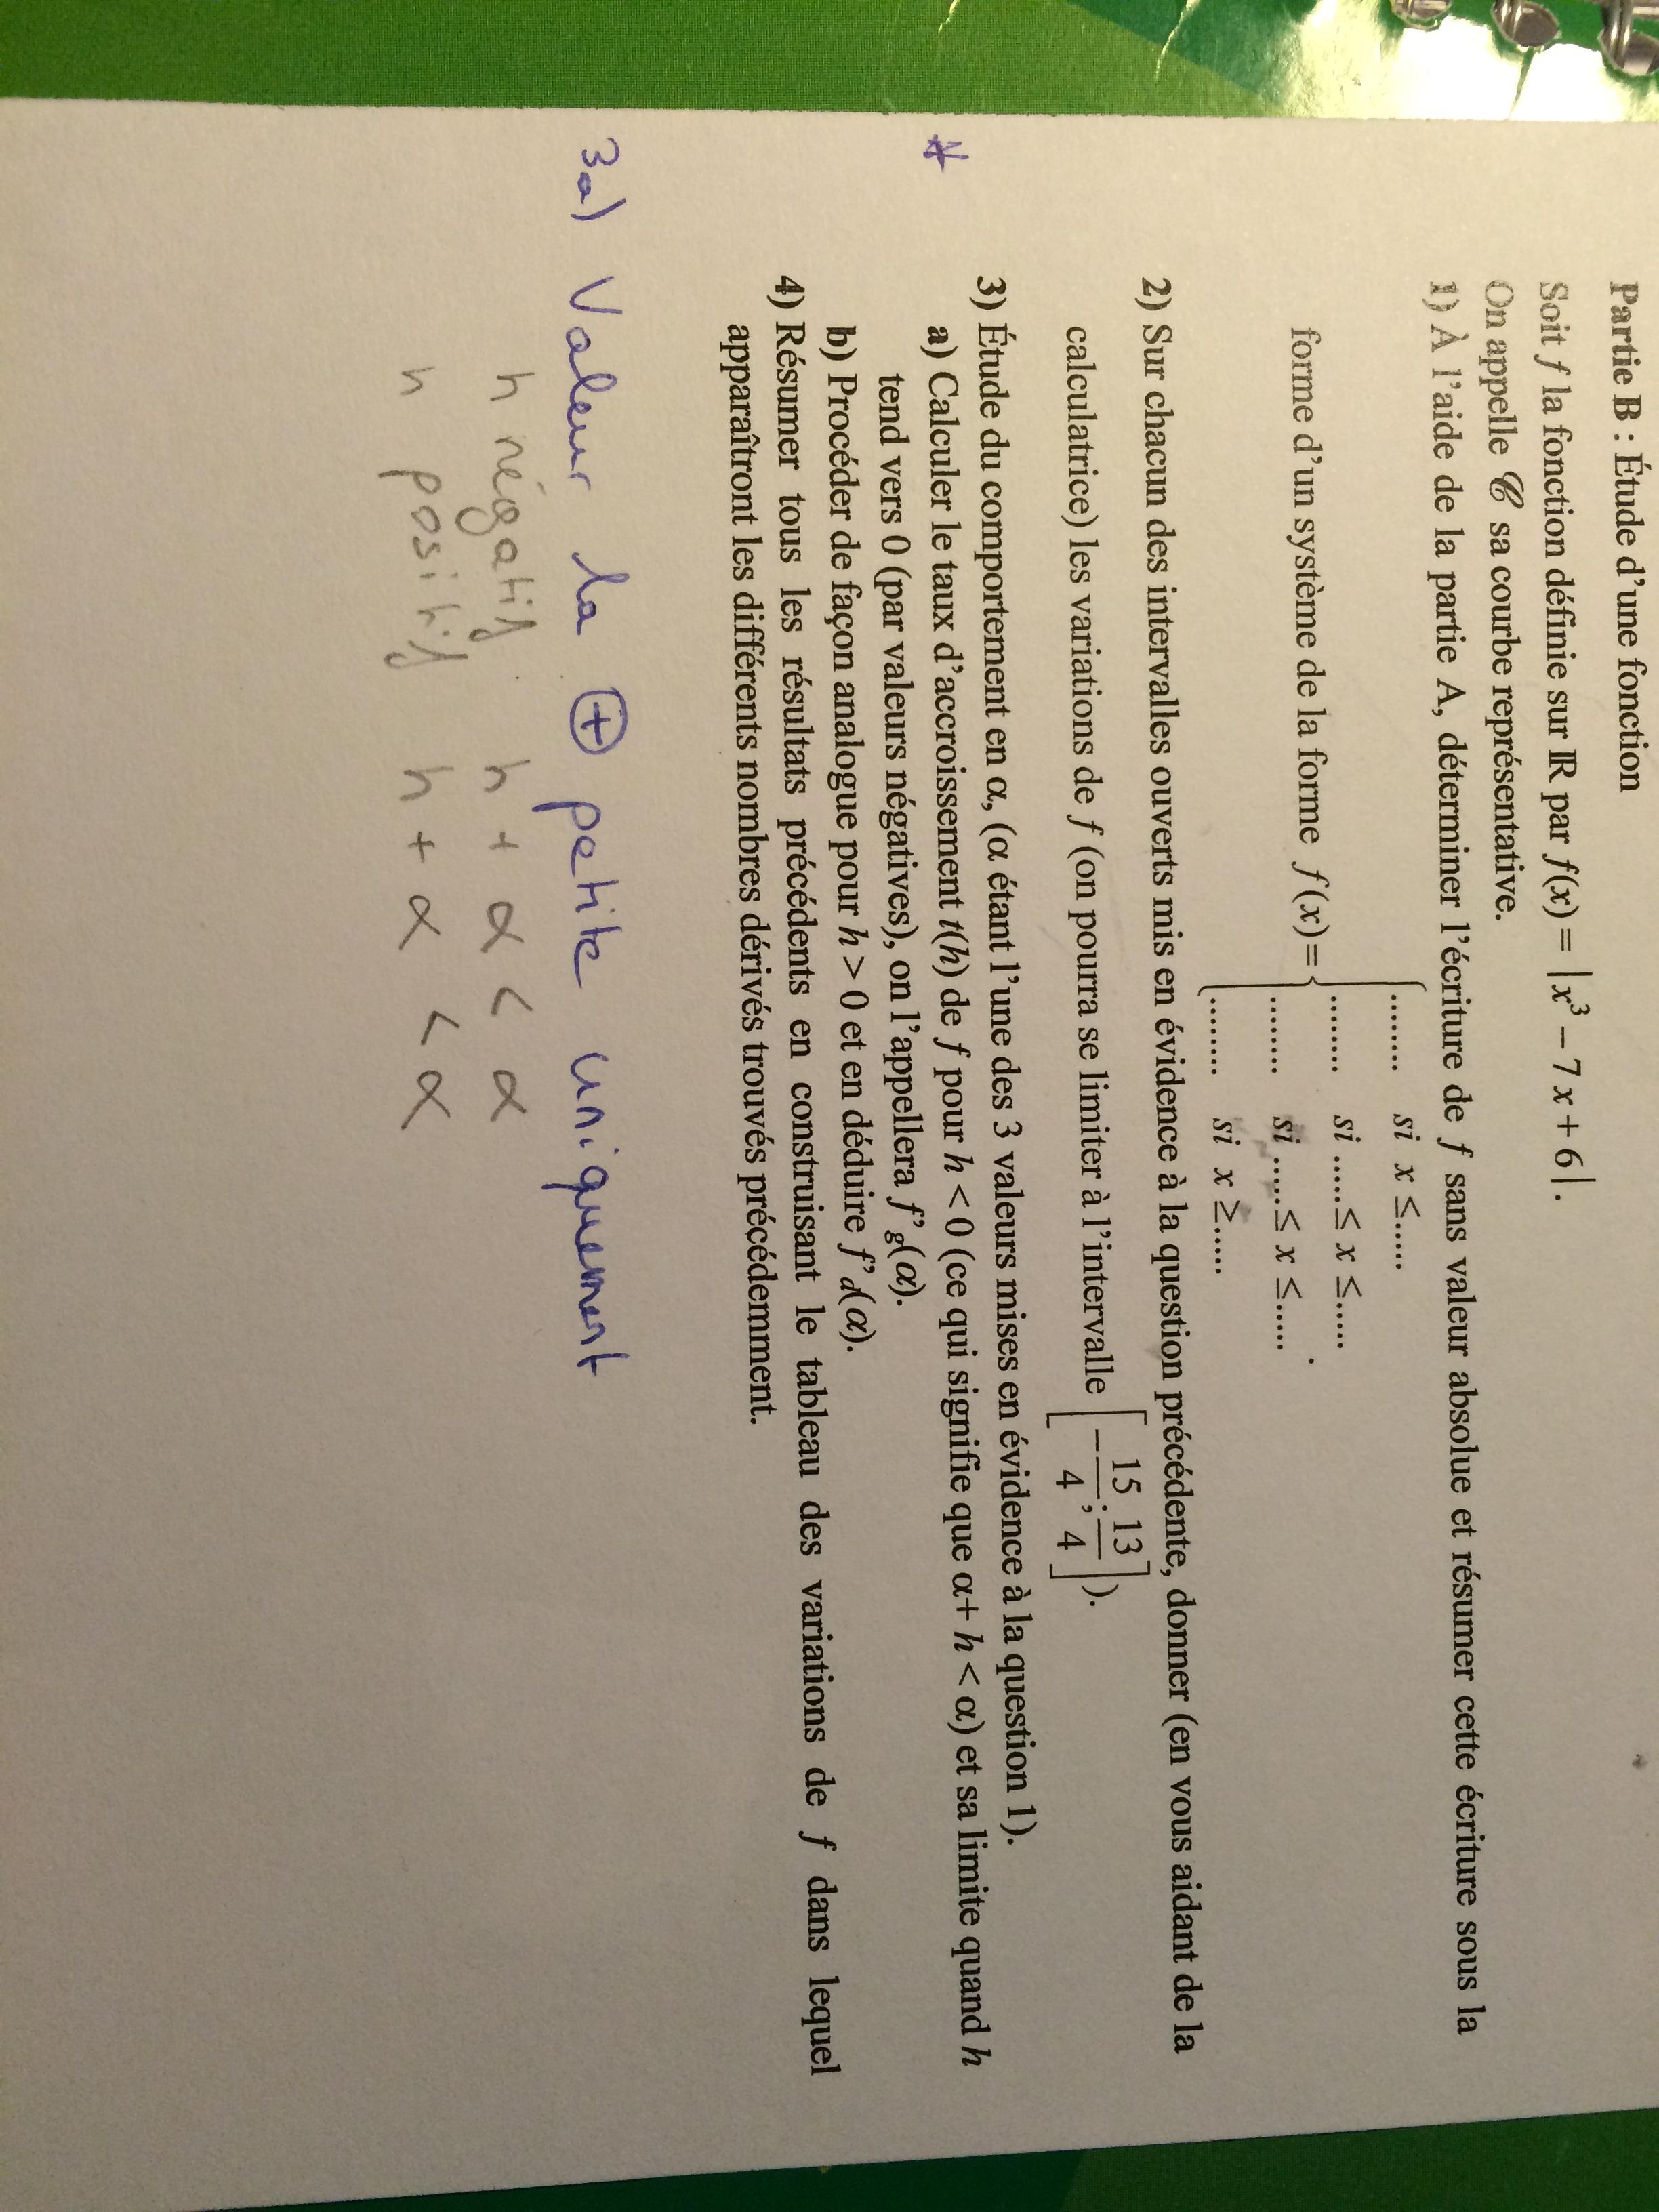 Partie B : Étude d'une fonction
Soit f la fonction définie sur ℝ par f(x) = |x³ − 7x + 6|.
On appelle 𝒞 sa courbe représentative.
1) À l'aide de la partie A, déterminer l'écriture de f sans valeur absolue et résumer cette écriture sous la
forme d'un système de la forme f(x) = {
........ si x ≤.....
........ si .....≤ x ≤.....
........ si .....≤ x ≤.....
........ si x ≥.....
.
2) Sur chacun des intervalles ouverts mis en évidence à la question précédente, donner (en vous aidant de la
calculatrice) les variations de f (on pourra se limiter à l'intervalle [−15/4 ; 13/4]).
3) Étude du comportement en α, (α étant l'une des 3 valeurs mises en évidence à la question 1).
* a) Calculer le taux d'accroissement t(h) de f pour h < 0 (ce qui signifie que α+ h < α) et sa limite quand h
tend vers 0 (par valeurs négatives), on l'appellera f'g(α).
b) Procéder de façon analogue pour h > 0 et en déduire f'd(α).
4) Résumer tous les résultats précédents en construisant le tableau des variations de f dans lequel
apparaîtront les différents nombres dérivés trouvés précédemment.
3a) Valeur la ⊕ petite uniquement
h négatif h + α < α
h positif h + α < α